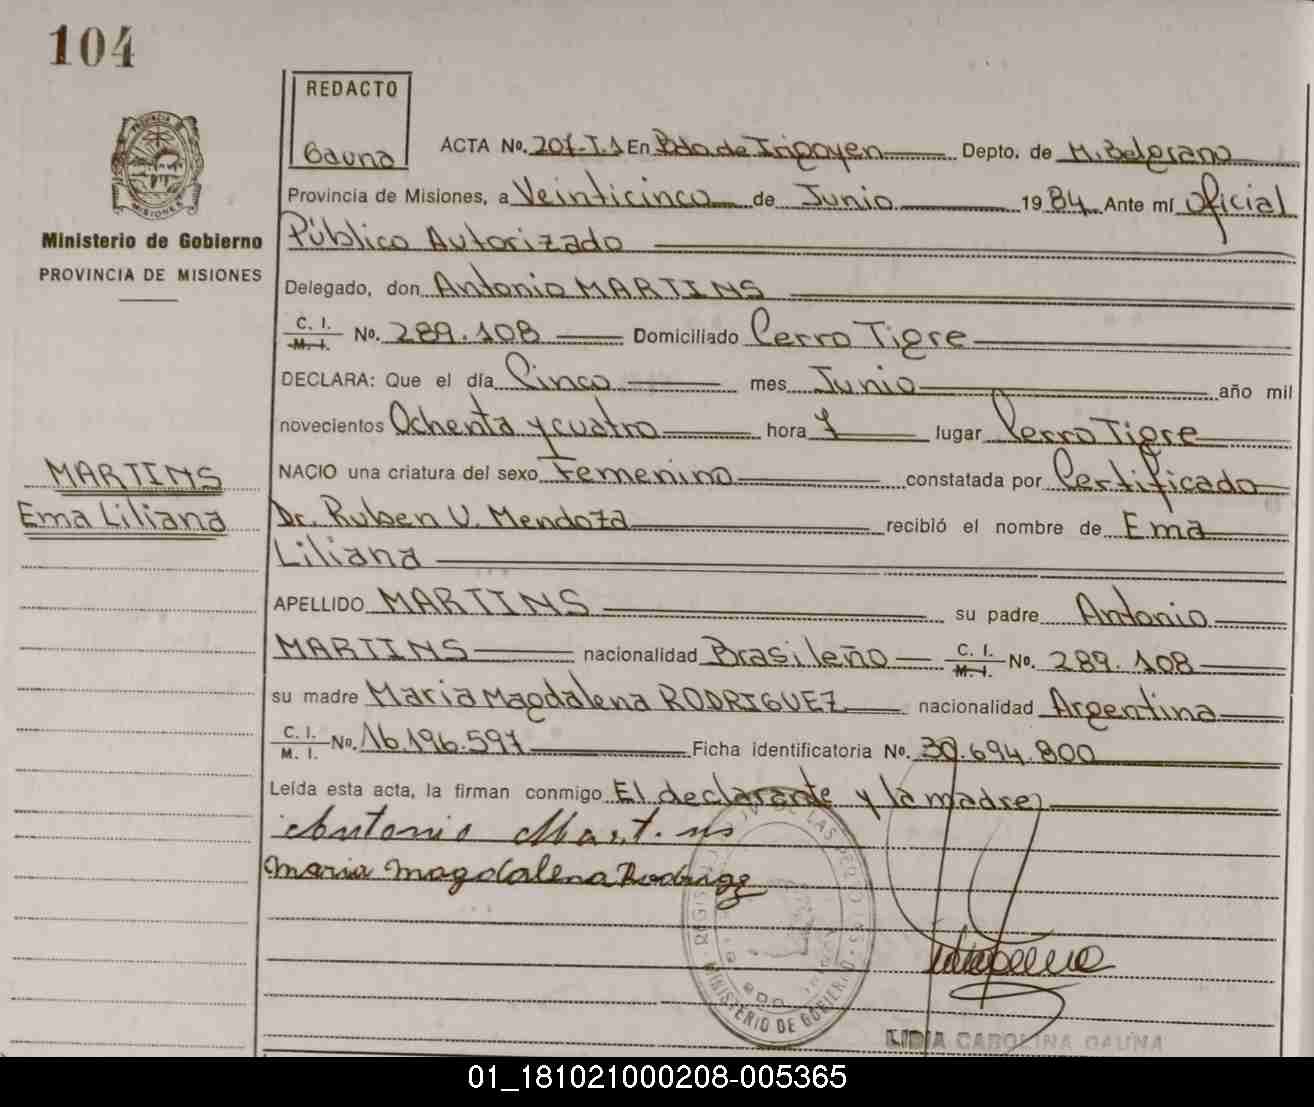 104
REDACTO
Gauna
ACTA No. 207-T.1 En Bdo. de Irigoyen Depto. de M. Belgrano
Provincia de Misiones, a Veinticinco de Junio 1984 Ante mí Oficial
Público Autorizado
PROVINCIA DE MISIONES
Ministerio de Gobierno
PROVINCIA DE MISIONES
Delegado, don Antonio MARTINS
C. I. M. I. No. 289.108 Domiciliado Cerro Tigre
DECLARA: Que el día Cinco mes Junio año mil
novecientos Ochenta y cuatro hora 7 lugar Cerro Tigre
MARTINS
Ema Liliana
NACIO una criatura del sexo Femenino constatada por Certificado
Dr. Ruben V. Mendoza recibió el nombre de Ema
Liliana
APELLIDO MARTINS su padre Antonio
MARTINS nacionalidad Brasileño C. I. M. I. No. 289.108
su madre Maria Magdalena RODRIGUEZ nacionalidad Argentina
C. I. M. I. No. 16.196.597 Ficha identificatoria No. 30.694.800
Leída esta acta, la firman conmigo El declarante y la madre
Antonio Martins
Maria Magdalena Rodrigz
MINISTERIO DE GOBIERNO
LIDIA CAROLINA GAUNA
01_181021000208-005365